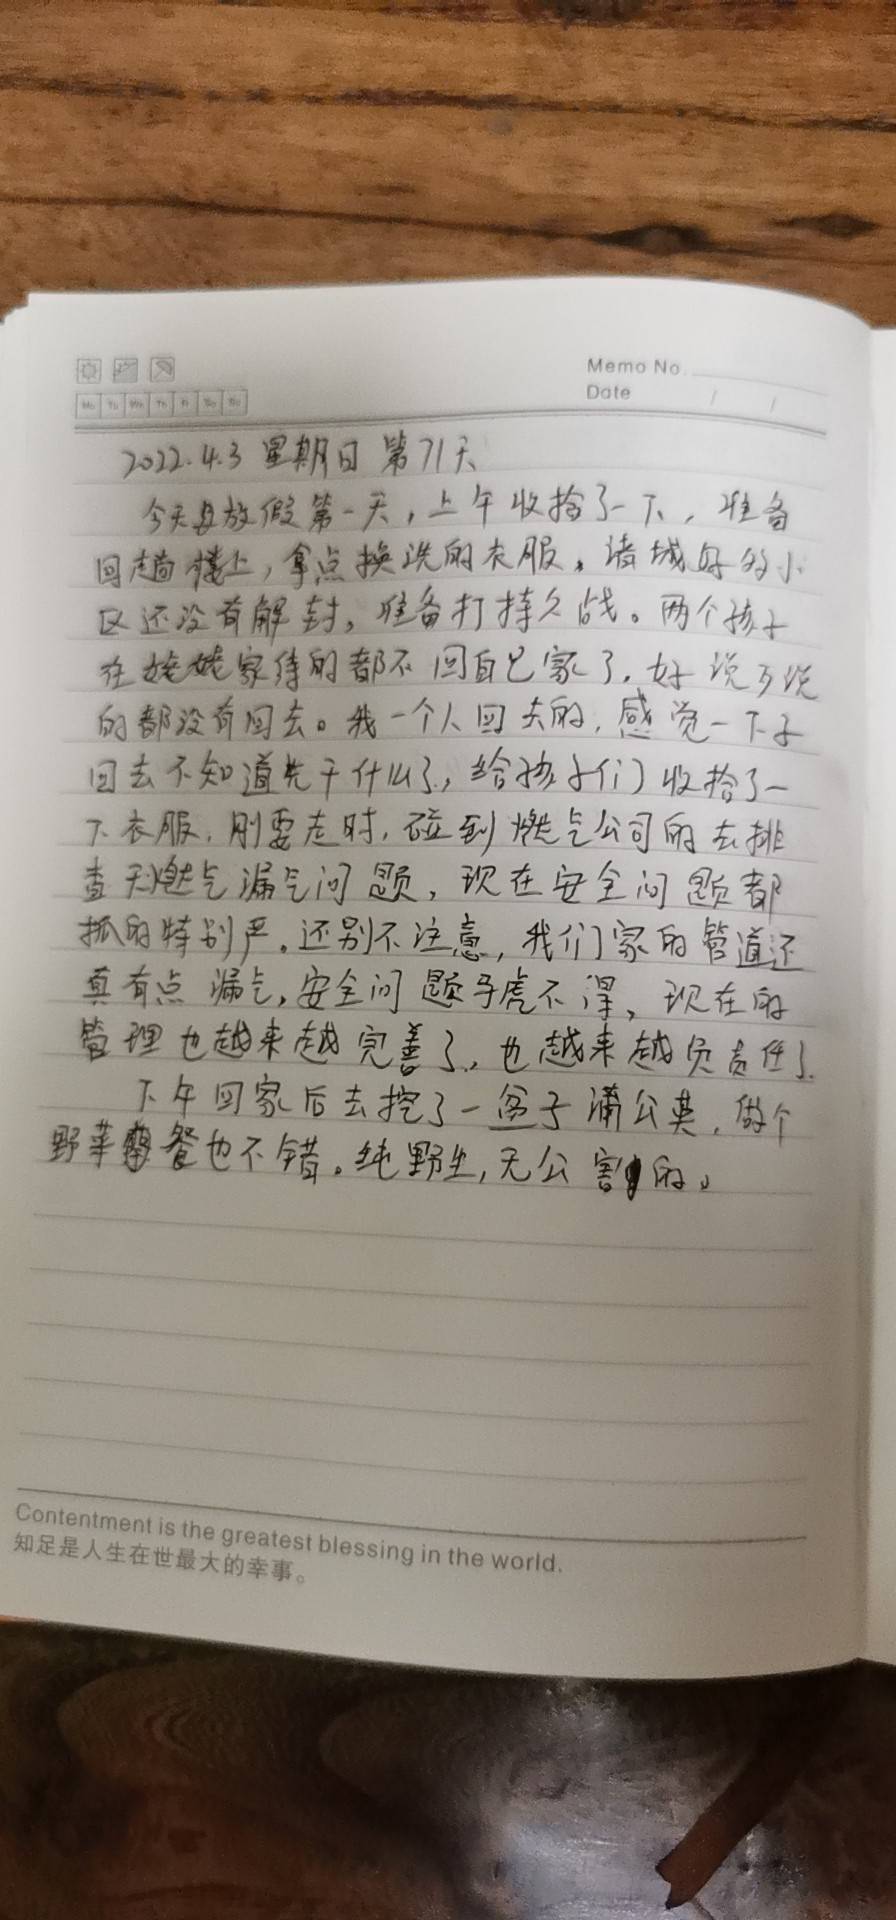 Memo No.
Date / /
2022.4.3 星期日 第71天
今天是放假第一天，上午收拾了一下，准备
回趟楼上，拿点换洗的衣服。诸城好多小
区还没有解封，准备打持久战。两个孩子
在姥姥家待的都不回自己家了，好说歹说
的都没有回去。我一个人回去的，感觉一下子
回去不知道先干什么了，给孩子们收拾了一
下衣服，刚要走时，碰到燃气公司的去排
查天燃气漏气问题，现在安全问题都
抓的特别严。还别不注意，我们家的管道还
真有点漏气，安全问题马虎不得，现在的
管理也越来越完善了，也越来越负责任了.
下午回家后去挖了一盆子蒲公英，做个
野菜餐也不错。纯野生，无公害的。
Contentment is the greatest blessing in the world.
知足是人生在世最大的幸事。